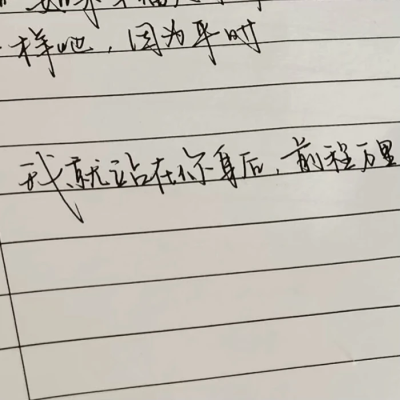 一样吧，因为平时
我就站在你身后，前程万里